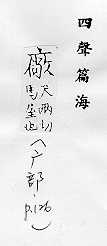 四聲篇海
廠
尺兩切
馬屋也
(广部, p.126)